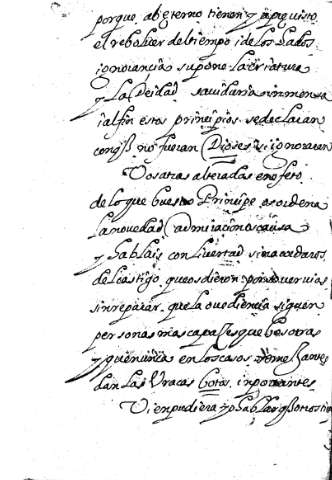 porque, abeterno tienen y an preuisto
el reboluer del tiempo i de los hados
ignorancia supone la criatura
y La Deidad sauiduria inmensa
i al fin estos principios se declaran
con q̃ no fueran Dioses si ignoraran
Vosotras alteradas en efeto
de lo que buestro Principe os ordena
la novedad admiracion os causa
y hablais con libertad sin acordaros
del castigo que os dieron por atreuerus
sin reparar que la ouediencia siguen
personas mas capaces que bosotras
y que nunca en los casos semejantes
dan las Vacas botos inportantes
Vien pudiera yo hablar q̃